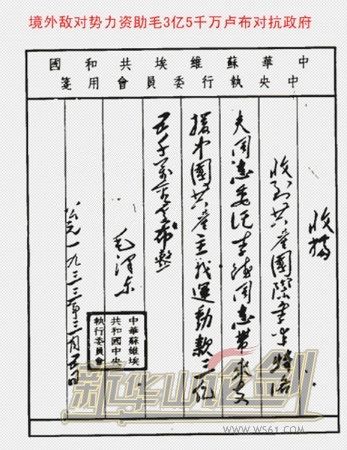 境外敌对势力资助毛3亿5千万卢布对抗政府
中華蘇維埃共和國
中央執行委員會用箋
收據
收到共產國際李特洛
夫同志委託李德同志带来支
援中國共產主義運動款三亿
五千萬盧布整
毛澤东
公元一九三三年三月五日
中華蘇維埃
共和國中央
執行委員會
WWW.WS61.COM